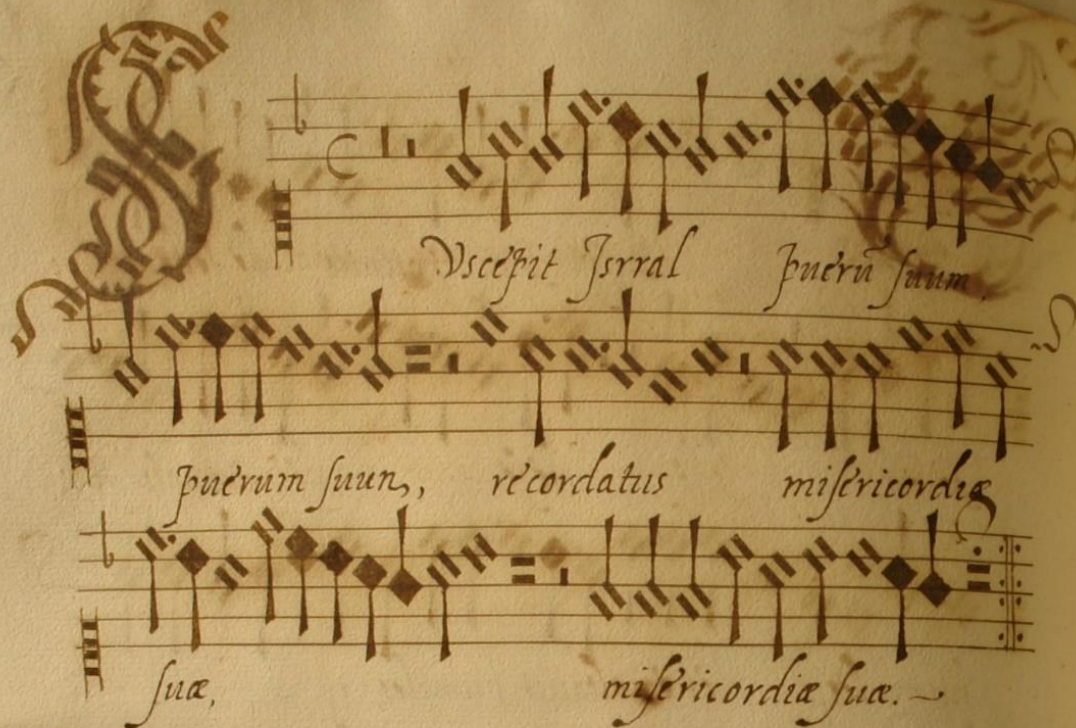 SVscepit Jsrral puerũ suum,
puerum suun, recordatus misericordiæ
suæ, misericordiæ suæ.